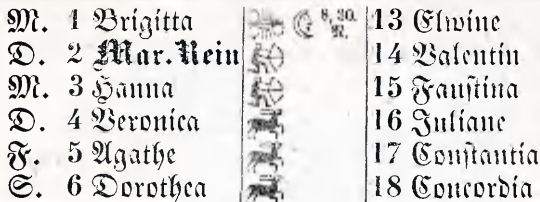 M. 1 Brigitta ☾ 8, 30. N. 13 Elwine
D. 2 Mar. Rein 14 Valentin
M. 3 Hanna 15 Faustina
D. 4 Veronica 16 Juliane
F. 5 Agathe 17 Constantia
S. 6 Dorothea 18 Concordia